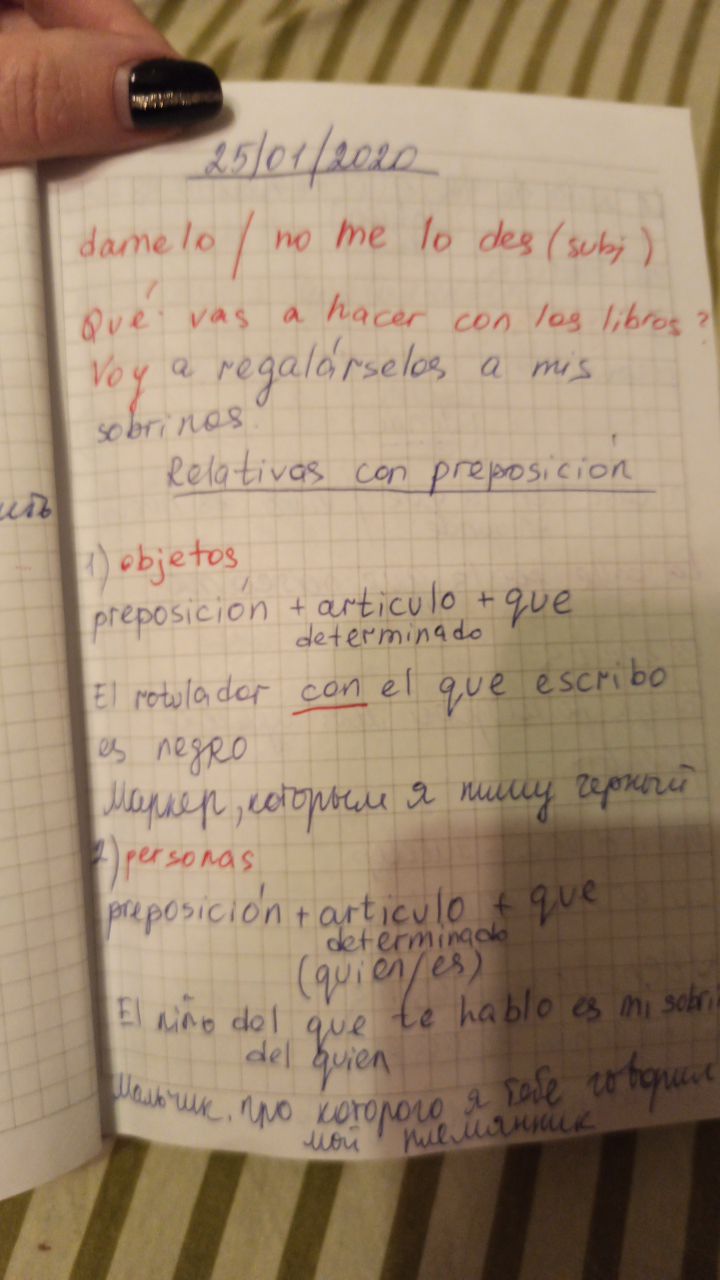 25/01/2020
damelo / no me lo des (subj)
Qué vas a hacer con los libros?
Voy a regalárselos a mis
sobrinos.
Relativas con preposición
ить
1) objetos
preposición + articulo + que
determinado
El rotulador con el que escribo
es negro
Маркер, которым я пишу черный
2) personas
preposición + articulo + que
determinado
(quien/es)
El niño del que te hablo es mi sobri
del quien
Мальчик, про которого я тебе говорил
мой племянник